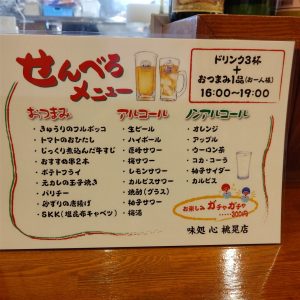 せんべろ
メニュー
ドリンク3杯
+
おつまみ1品(お一人様)
16:00〜19:00
おつまみ
・きゅうりのフルボッコ
・トマトのおひたし
・じっくり煮込んだ牛すじ
・おすすめ串2本
・ポテトフライ
・元カレの玉子焼き
・パリチー
・砂ずりの唐揚げ
・SKK(塩昆布キャベツ)
アルコール
・生ビール
・ハイボール
・梅サワー
・レモンサワー
・カルピスサワー
・柚子サワー
・焼酎(グラス)
・梅酒
ノンアルコール
・オレンジ
・アップル
・ウーロン茶
・コカ・コーラ
・柚子サイダー
・カルピス
お楽しみ ガチャガチャ
……300円
味処 心 桃晃店